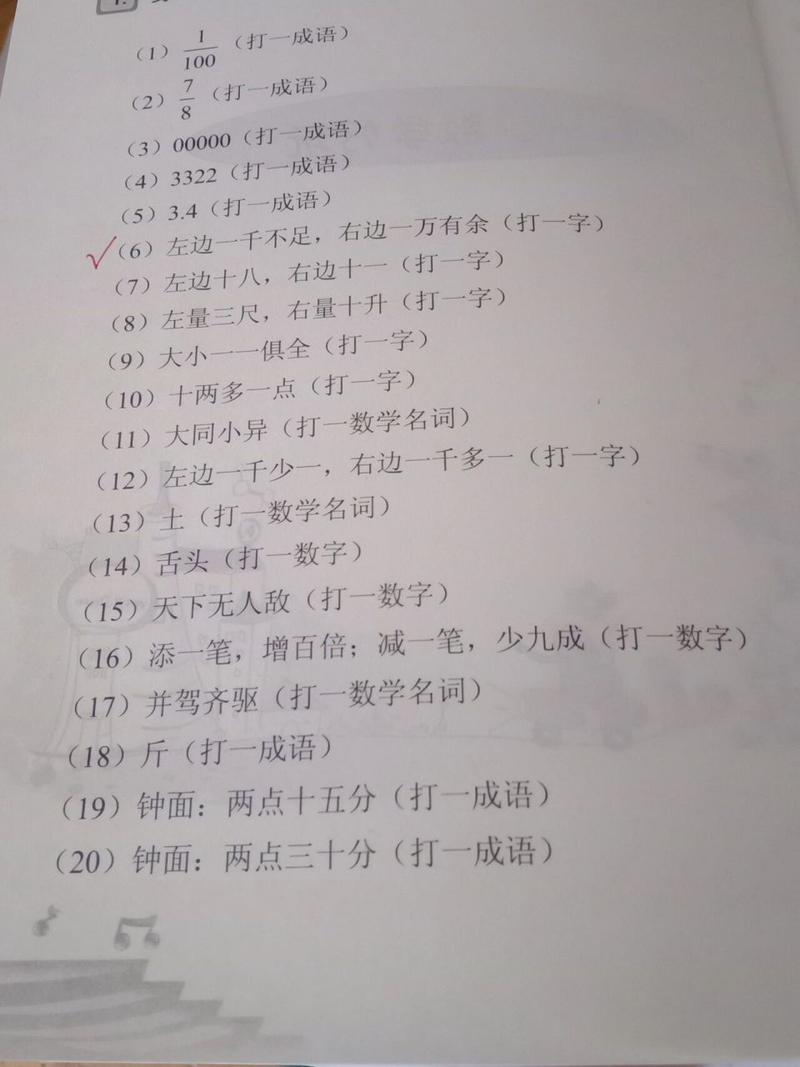 (1) 1/100 (打一成语)
(2) 7/8 (打一成语)
(3) 00000 (打一成语)
(4) 3322 (打一成语)
(5) 3.4 (打一成语)
(6) 左边一千不足，右边一万有余 (打一字)
(7) 左边十八，右边十一 (打一字)
(8) 左量三尺，右量十升 (打一字)
(9) 大小一一俱全 (打一字)
(10) 十两多一点 (打一字)
(11) 大同小异 (打一数学名词)
(12) 左边一千少一，右边一千多一 (打一字)
(13) 土 (打一数学名词)
(14) 舌头 (打一数字)
(15) 天下无人敌 (打一数字)
(16) 添一笔，增百倍；减一笔，少九成 (打一数字)
(17) 并驾齐驱 (打一数学名词)
(18) 斤 (打一成语)
(19) 钟面：两点十五分 (打一成语)
(20) 钟面：两点三十分 (打一成语)